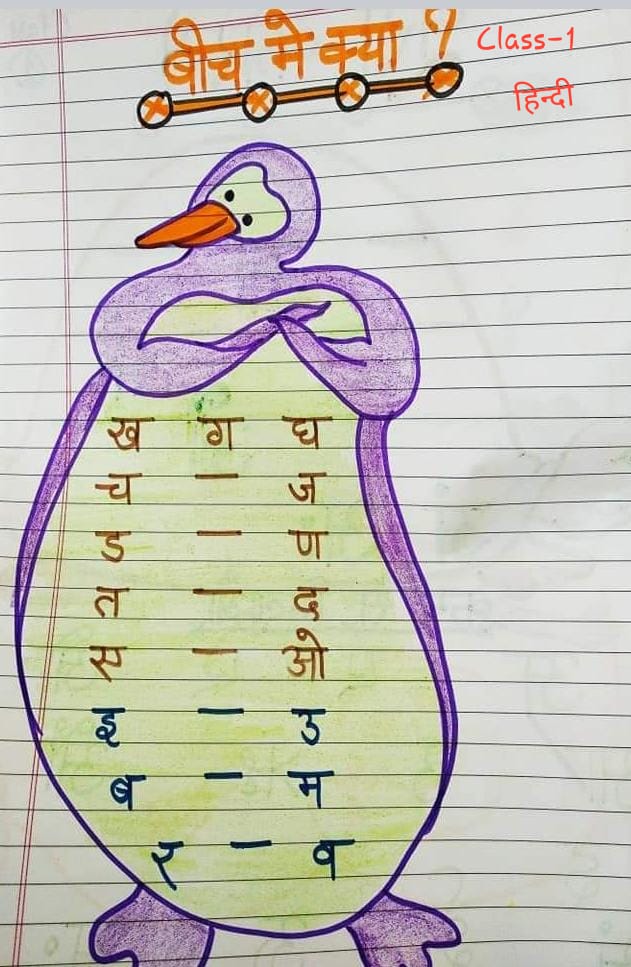 बीच मे क्या ?
Class-1
हिन्दी
ख ग घ
च — ज
ड — ण
त — द
स — ओ
इ — उ
ब — म
र — व